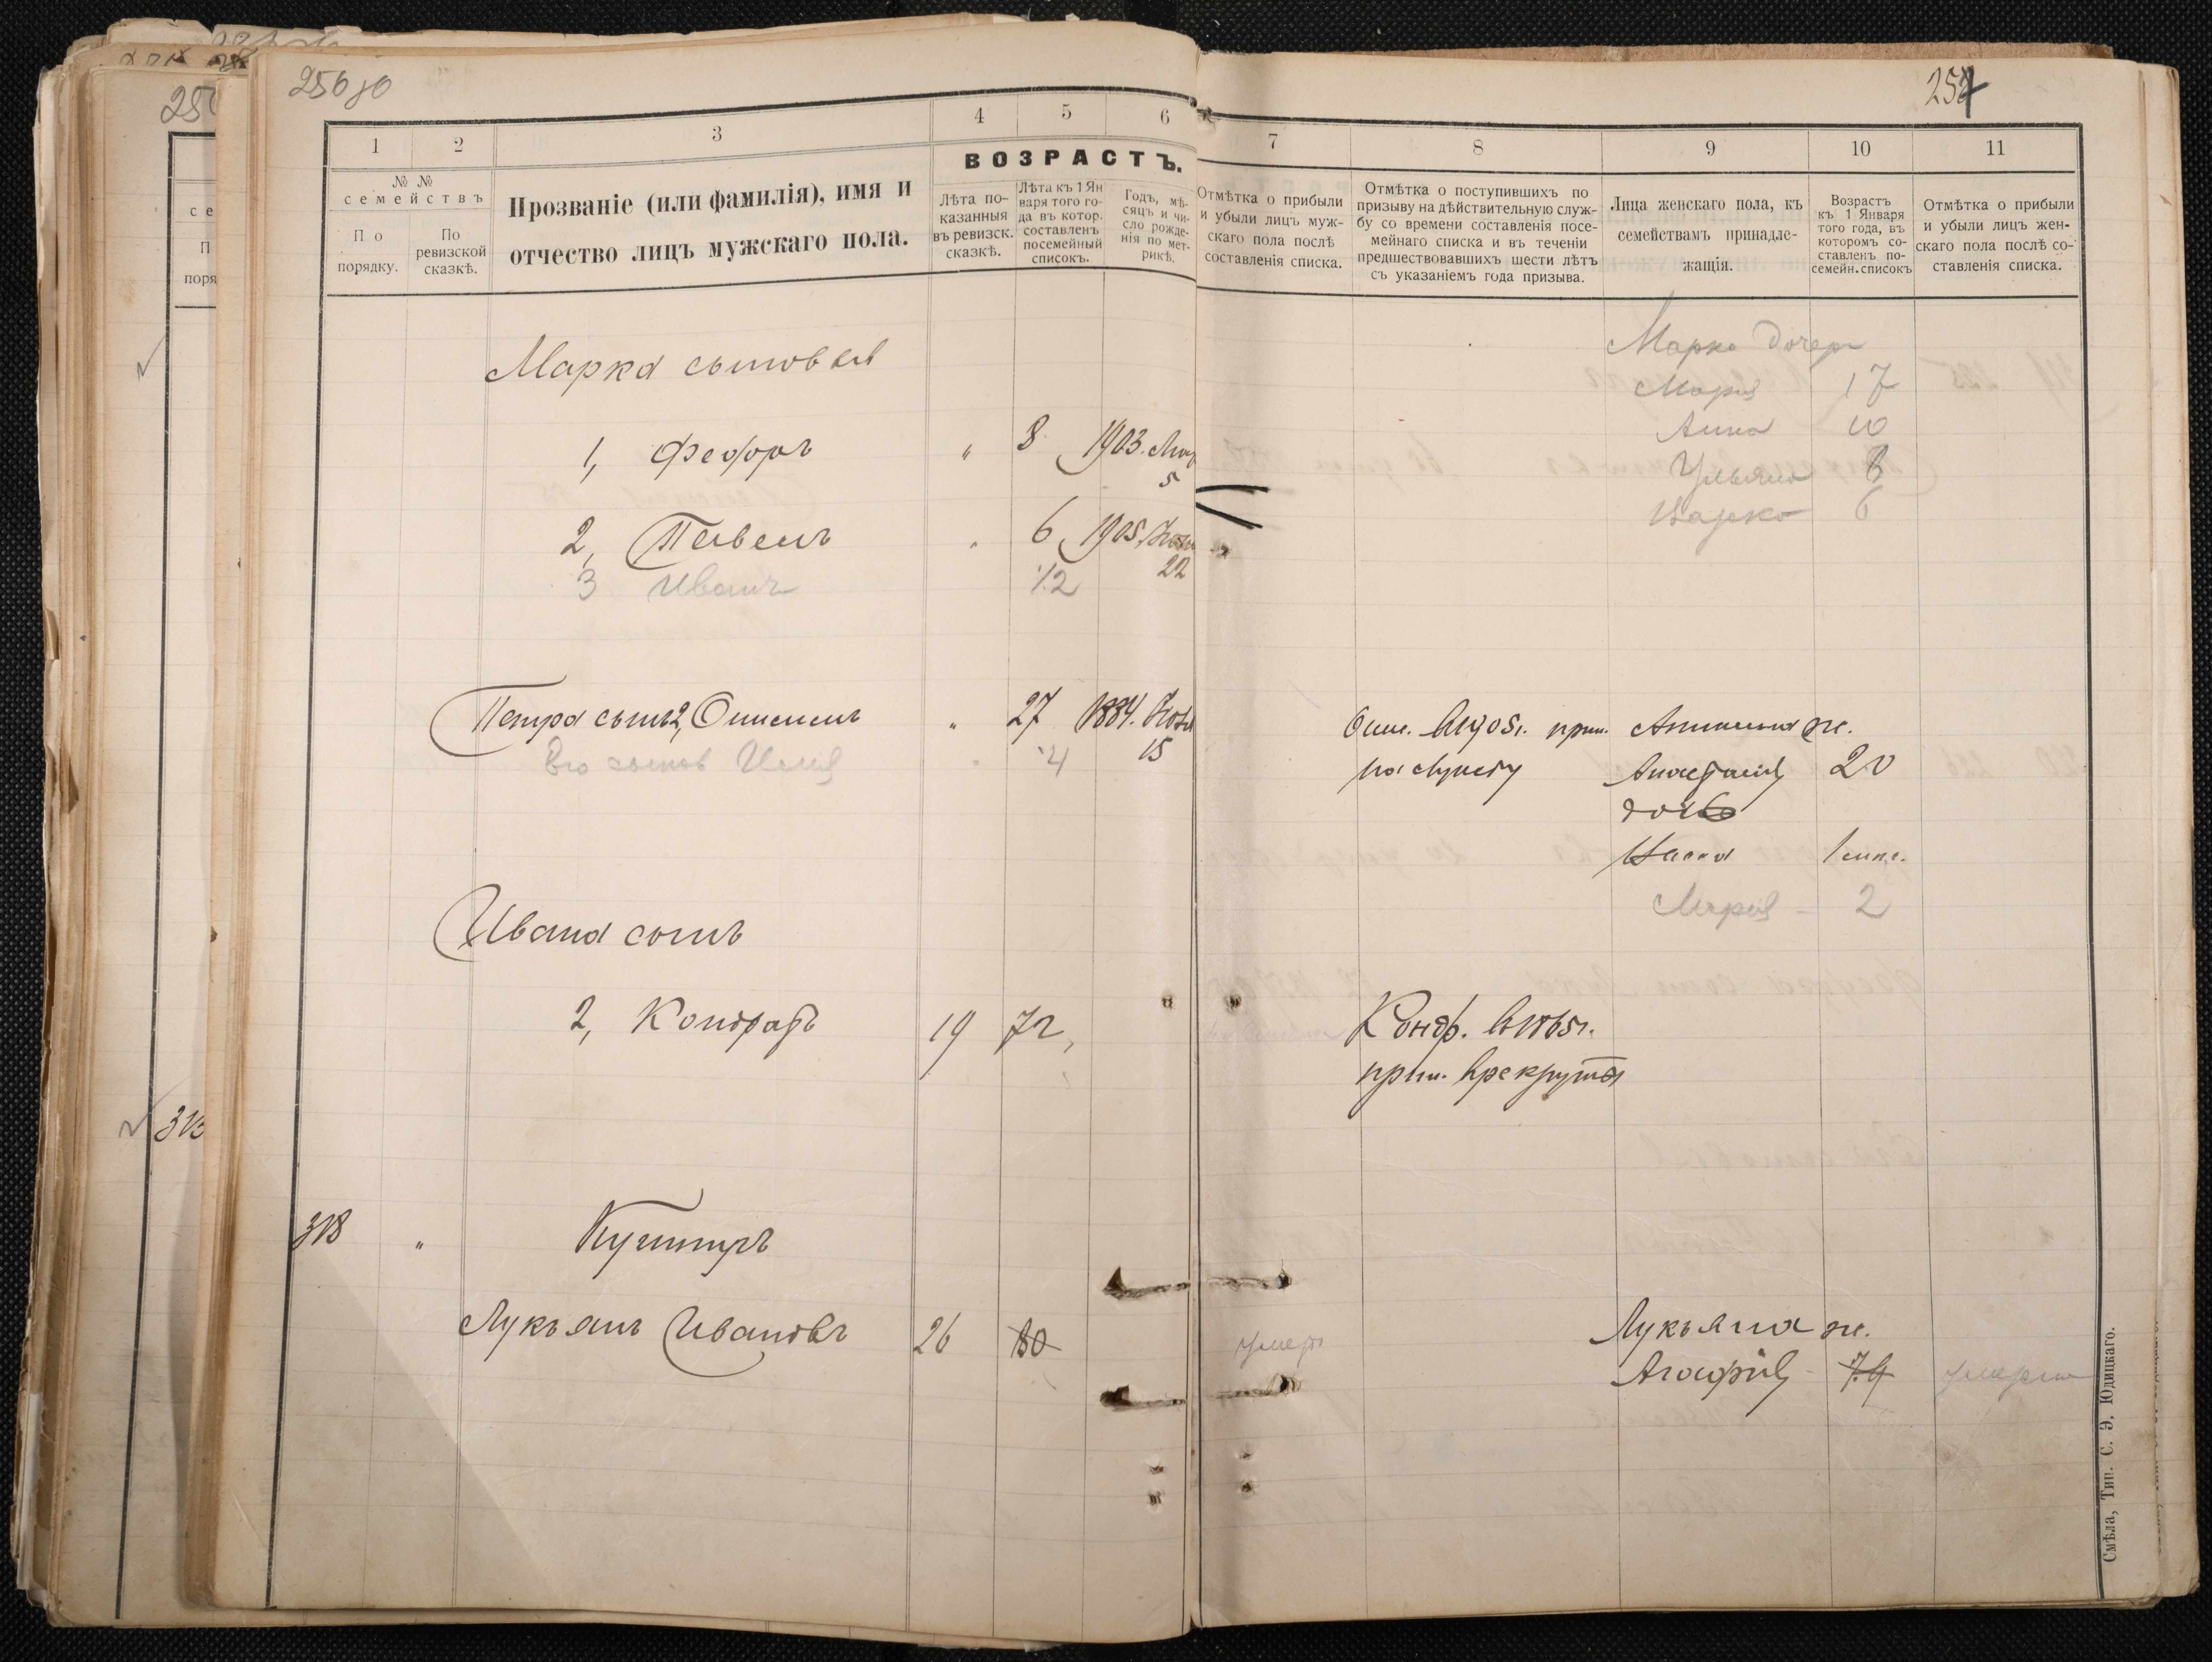 256 об
257
1
2
3
4
5
6
7
8
9
10
11
№ №
семействъ
По
порядку.
По
ревизской
сказкѣ.
Прозваніе (или фамилія), имя и
отчество лицъ мужскаго пола.
ВОЗРАСТЪ.
Лѣта по-
казанныя
въ ревизск.
сказкѣ.
Лѣта къ 1 Ян
варя того го-
да въ котор.
составленъ
посемейный
списокъ.
Годъ, мѣ-
сяцъ и чи-
сло рожде-
нія по мет-
рикѣ.
Отмѣтка о прибыли
и убыли лицъ муж-
скаго пола послѣ
составленія списка.
Отмѣтка о поступившихъ по
призыву на дѣйствительную служ-
бу со времени составленія посе-
мейнаго списка и въ теченіи
предшествовавшихъ шести лѣтъ
съ указаніемъ года призыва.
Лица женскаго пола, къ
семействамъ принадле-
жащія.
Возрастъ
къ 1 Января
того года, въ
которомъ со-
ставленъ по-
семейн. списокъ
Отмѣтка о прибыли
и убыли лицъ жен-
скаго пола послѣ со-
ставленія списка.
Марка сыновья
1, Федоръ " 8 1903.
5
2, Павелъ " 6 1905. Ноя
22
3 Иванъ 12
Марка дочери
Мария 17
Анна 10
Ульяна 8
6
Петра сынъ 2, Онисимъ " 27 1884. Ноя
15
Его сынов 4
Онис. в 1905 г. прин.
на службу
Анисима ж.
Анастасія 20
дочь
1 мис.
Мария - 2
Ивана сынъ
2, Кондратъ 19 72,
Конд. в 1865 г.
прин. в рекруты
318 " Кушниръ
Лукьянъ Ивановъ 26 80 умеръ
Лукьяна ж.
Агафія - 74 умерла
Смѣла, Тип. С. Э. Юдицкаго.